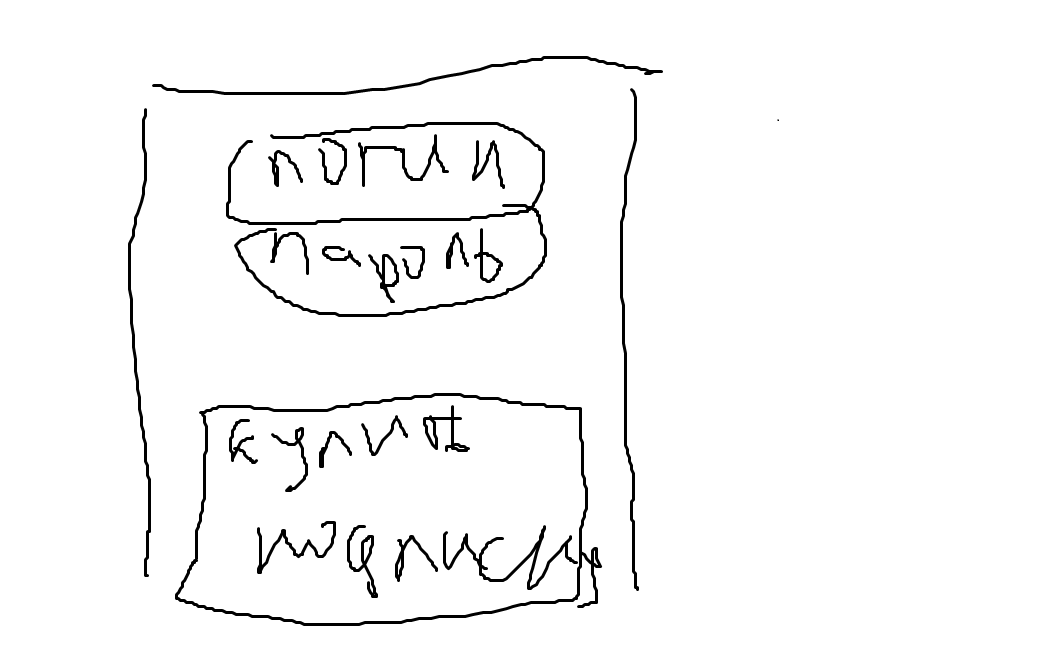 логин
пароль
купить
подписку